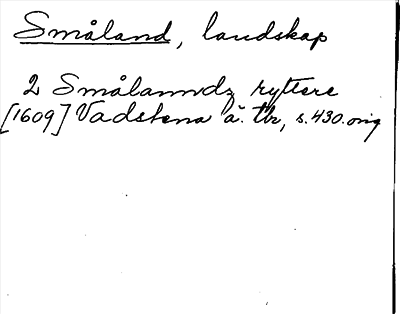 Småland, landskap
2 Smålanndz ryttere
[1609] Vadstena ä. tb, s. 430. orig